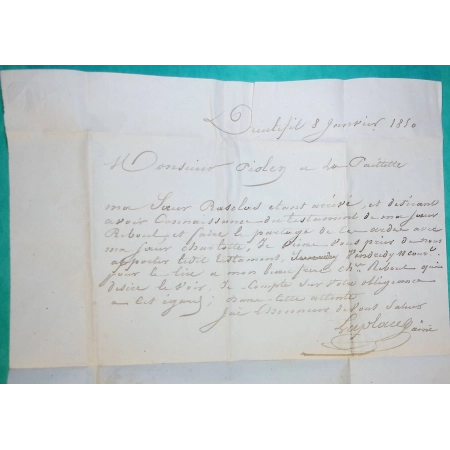 Dieulefit 8 Janvier 1850
Monsieur Pioley a la Paillette
ma Sœur Baselos étant arrivé, et désirant
avoir Connaissance du testament de ma sœur
Reboul, et faire le partage de ce avec
ma sœur Charlotte, Je viens vous prier de nous
apporter ledit testament, Vendredy
pour le lire a mon beau frère Reboul qui
désire le voir. Je Compte sur votre obligeance
a cet égard; dans cette attente
Jai L'honneur de vous Saluer
Laplace ainé